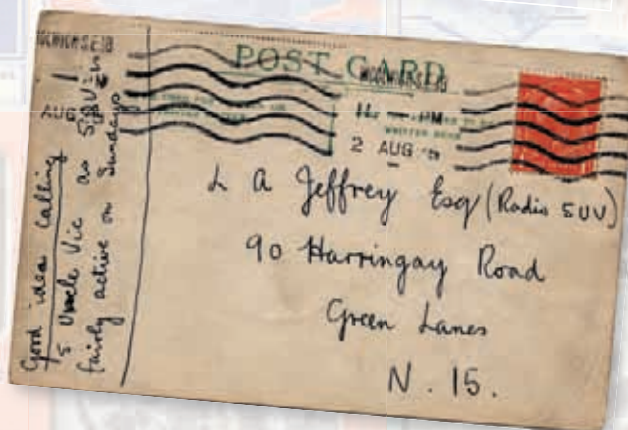 POST CARD
WOOLWICH S.E.18
PM
2 AUG
AUG
Good idea calling
5 Uncle Vic as 5BV is
fairly active on Sundays
L A Jeffrey Esq (Radio 5UV)
90 Harringay Road
Green Lanes
N. 15.